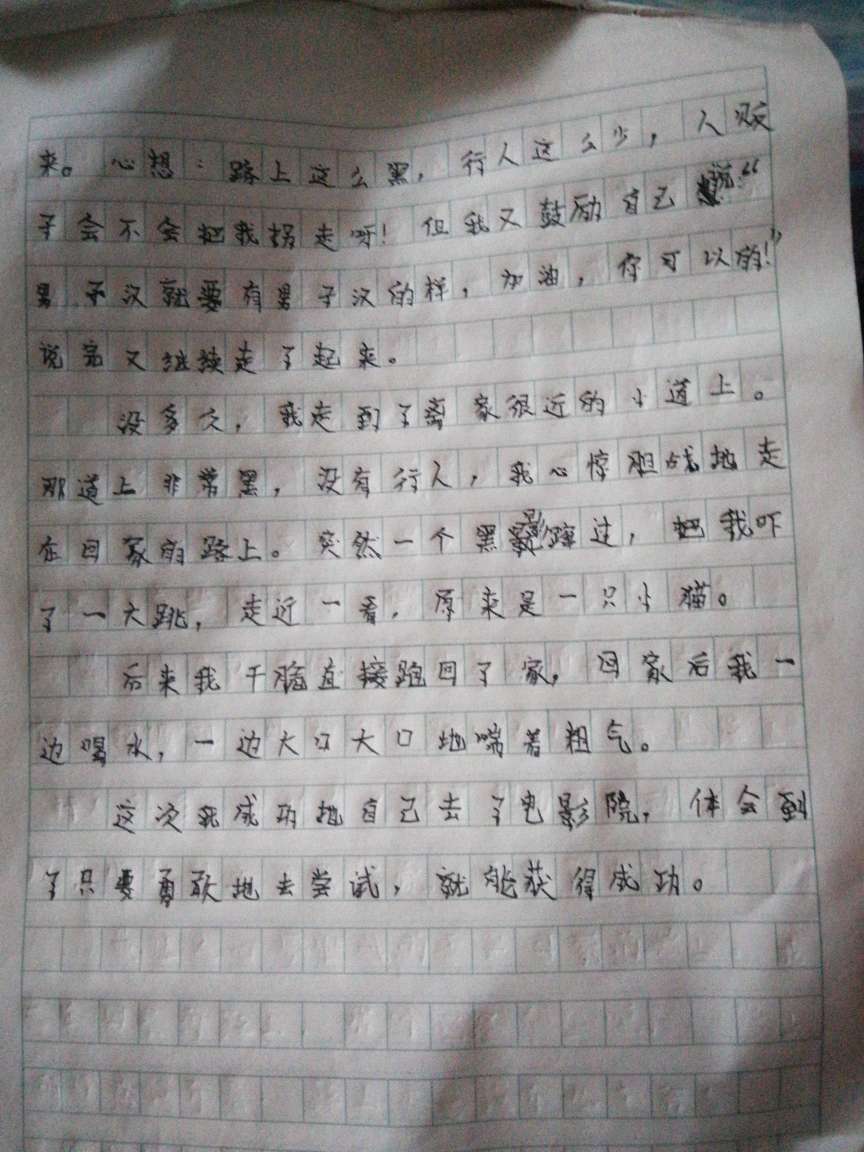 来。心想：路上这么黑，行人这么少，人贩
子会不会把我拐走呀！但我又鼓励自己说“
男子汉就要有男子汉的样，加油，你可以的！”
说完又继续走了起来。
没多久，我走到了离家很近的小道上。
那道上非常黑，没有行人，我心惊胆战地走
在回家的路上。突然一个黑影蹿过，把我吓
了一大跳，走近一看，原来是一只小猫。
后来我干脆直接跑回了家，回家后我一
边喝水，一边大口大口地喘着粗气。
这次我成功地自己去了电影院，体会到
了只要勇敢地去尝试，就能获得成功。